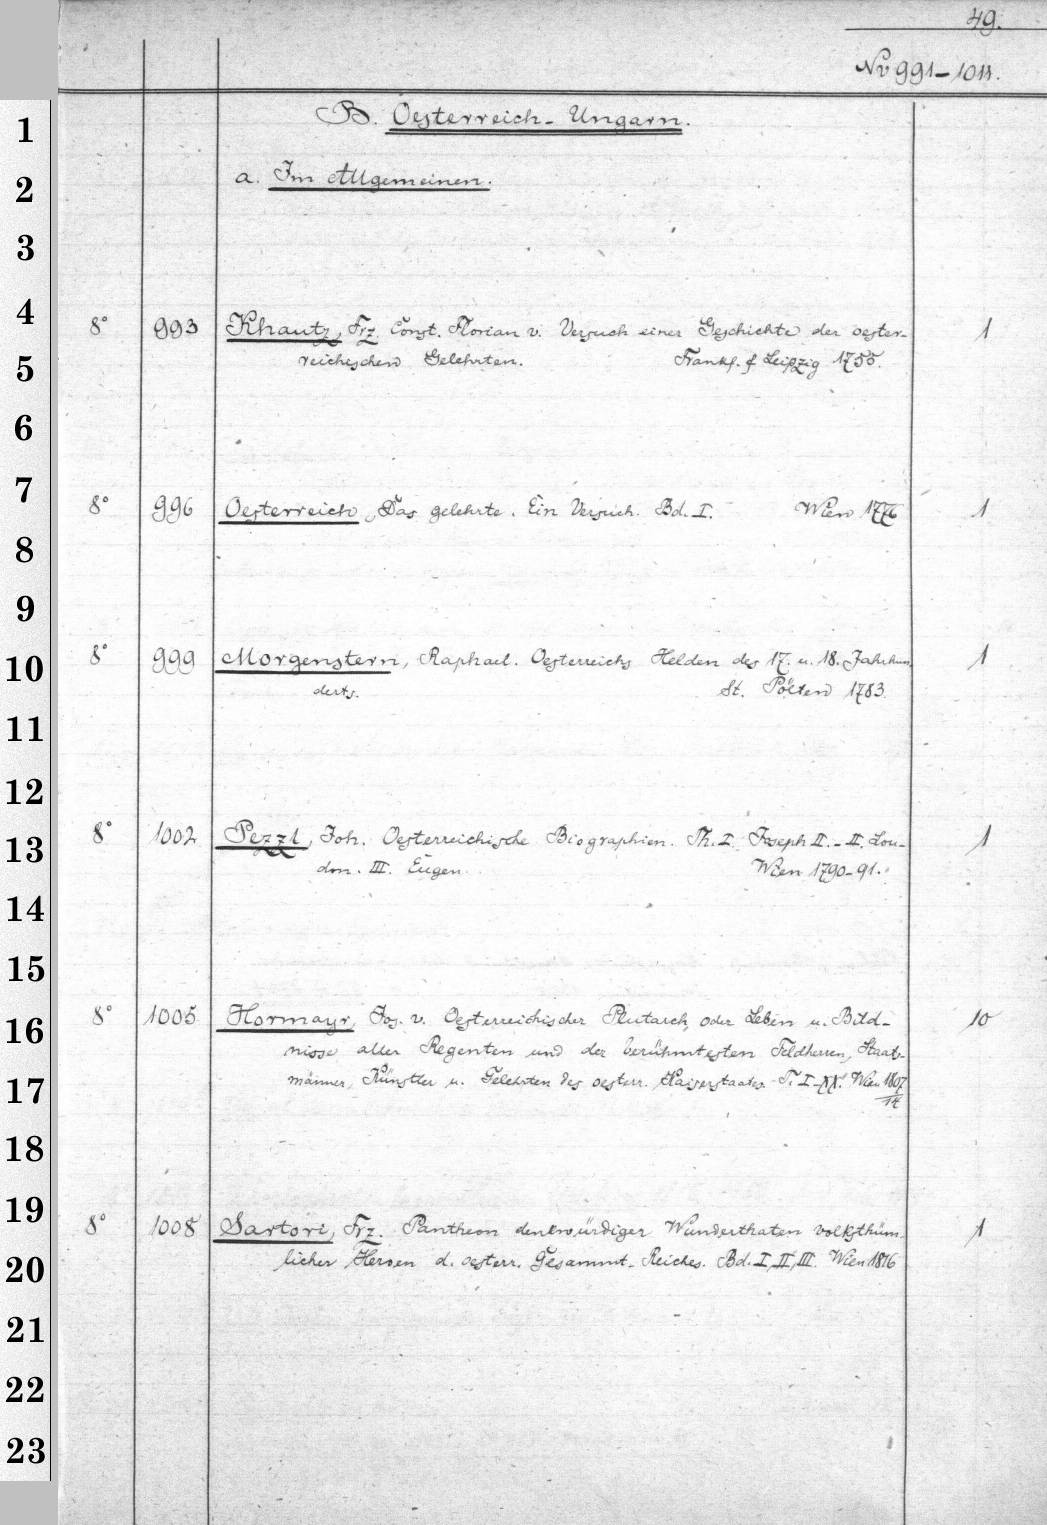 49.
Nr 991-1011.
1
B. Oesterreich-Ungarn.
2
a. Im Allgemeinen.
3
4
8° 993 Khautz, Frz. Const. Florian v. Versuch einer Geschichte der oester- 1
5
reichischen Gelehrten. Frankf. & Leipzig 1755.
6
7
8° 996 Oesterreich, Das gelehrte. Ein Versuch. Bd. I. Wien 1776 1
8
9
10
8° 999 Morgenstern, Raphael. Oesterreichs Helden des 17. u. 18. Jahrhun 1
derts. St. Pölten 1783.
11
12
13
8° 1002 Pezzl, Joh. Oesterreichische Biographien. Th. I. Joseph II. - II. Lou- 1
don. III. Eugen. Wien 1790-91.
14
15
16
8° 1005 Hormayr, Jos. v. Oesterreichischer Plutarch, oder Leben u. Bild- 10
nisse aller Regenten und der berühmtesten Feldherren, Staats-
17
männer, Künstler u. Gelehrten des oesterr. Kaiserstaates. T. I-XX. Wien 1807/14
18
19
8° 1008 Sartori, Frz. Pantheon denkwürdiger Wunderthaten volksthüm 1
20
licher Heroen d. oesterr. Gesammt-Reiches. Bd. I, II, III. Wien 1816
21
22
23